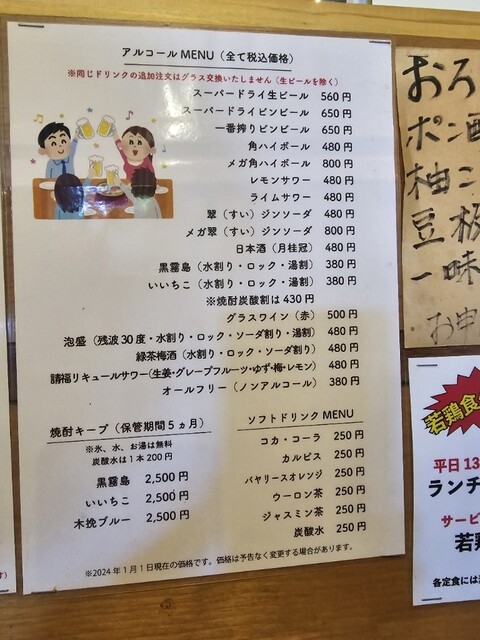 アルコールMENU（全て税込価格）
※同じドリンクの追加注文はグラス交換いたしません（生ビールを除く）
スーパードライ生ビール 560円
スーパードライビンビール 650円
一番搾りビンビール 650円
角ハイボール 480円
メガ角ハイボール 800円
レモンサワー 480円
ライムサワー 480円
翠（すい）ジンソーダ 480円
メガ翠（すい）ジンソーダ 800円
日本酒（月桂冠） 480円
黒霧島（水割り・ロック・湯割） 380円
いいちこ（水割り・ロック・湯割） 380円
※焼酎炭酸割は430円
グラスワイン（赤） 500円
泡盛（残波30度・水割り・ロック・ソーダ割り・湯割） 480円
緑茶梅酒（水割り・ロック・ソーダ割り） 480円
請福リキュールサワー（生姜・グレープフルーツ・ゆず・梅・レモン） 480円
オールフリー（ノンアルコール） 380円
焼酎キープ（保管期間5ヵ月）
※氷、水、お湯は無料
炭酸水は1本200円
黒霧島 2,500円
いいちこ 2,500円
木挽ブルー 2,500円
ソフトドリンクMENU
コカ・コーラ 250円
カルピス 250円
バヤリースオレンジ 250円
ウーロン茶 250円
ジャスミン茶 250円
炭酸水 250円
※2024年1月1日現在の価格です。価格は予告なく変更する場合があります。
おろ
ポン酒
柚こ
豆板
一味
お申
若鶏食
平日13
ランチ
サービ
若鶏
各定食には
す）